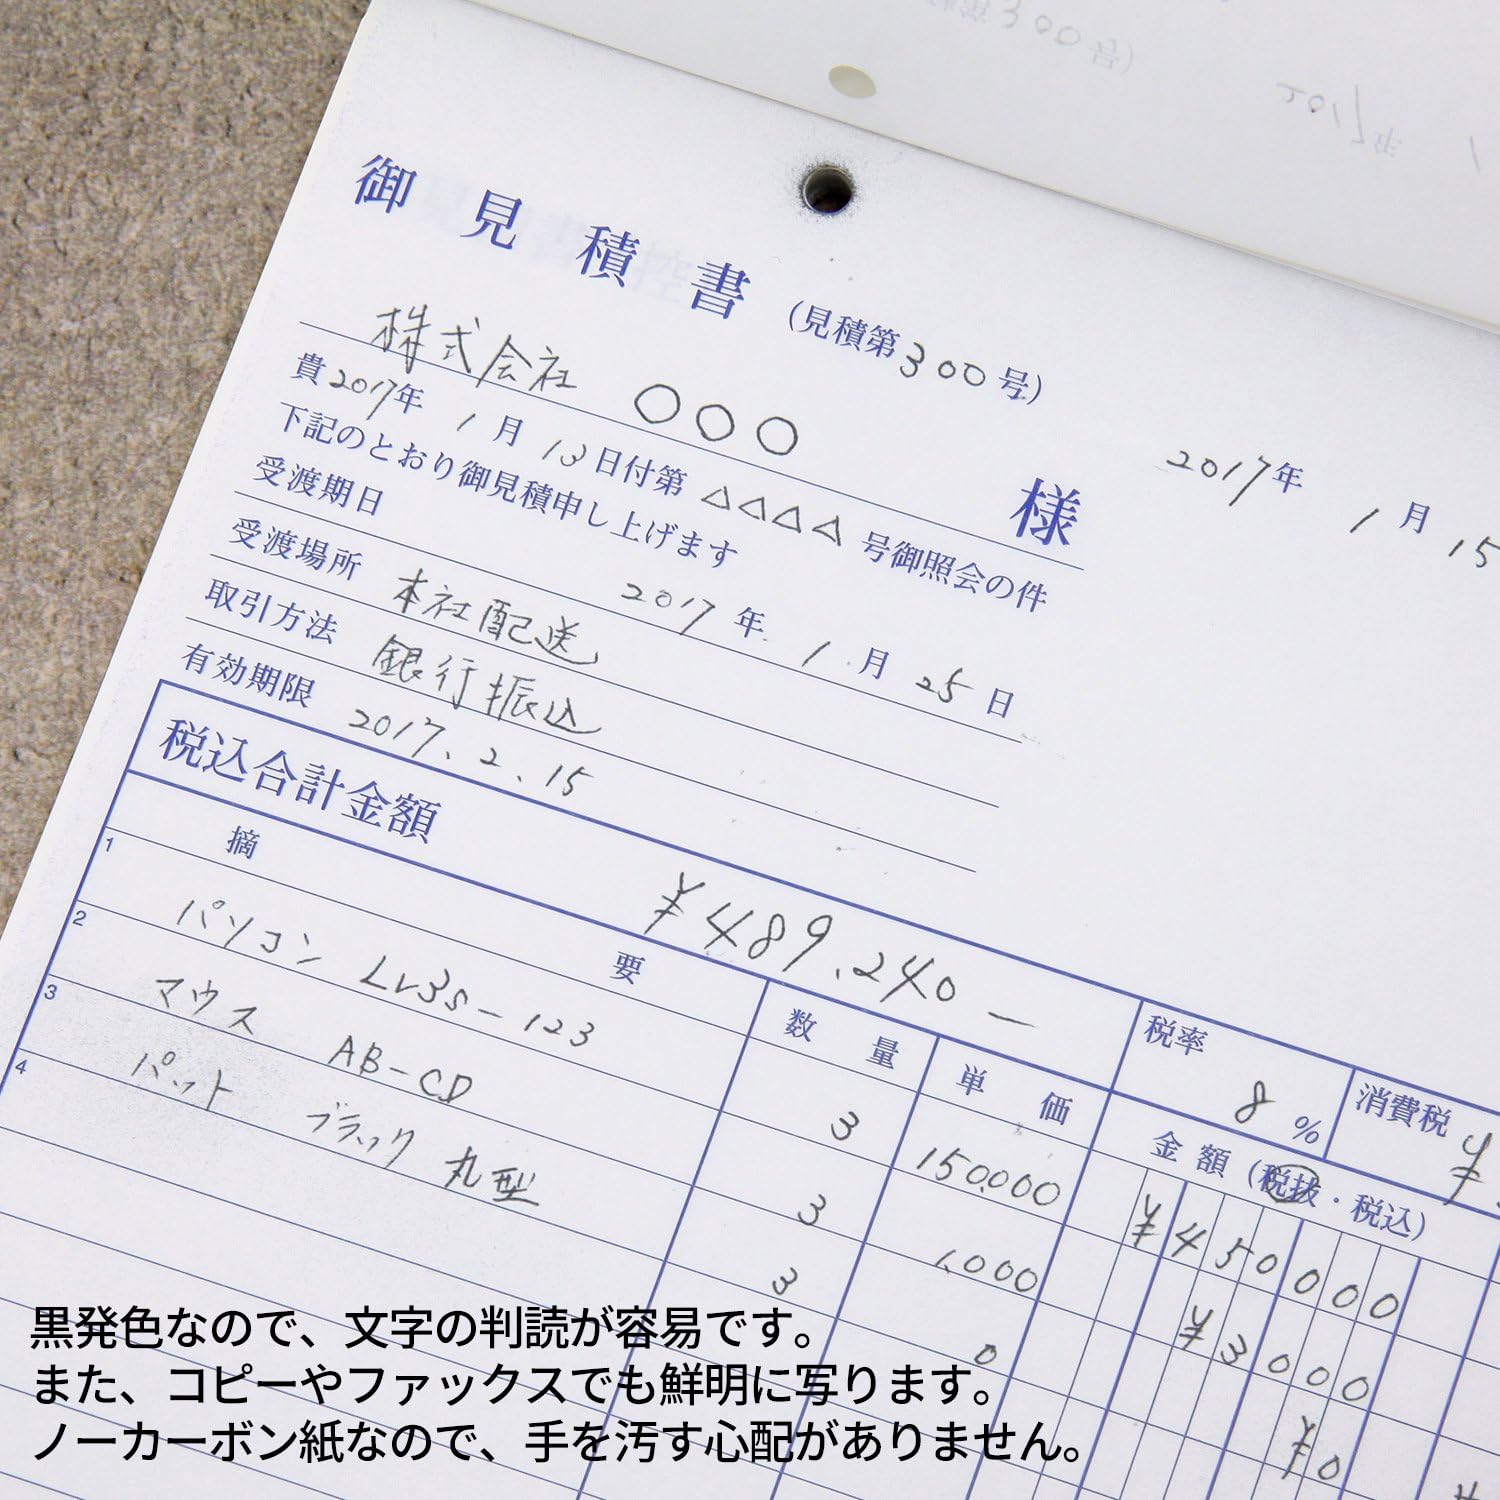 御見積書(見積第300号)
株式会社 ○○○ 様
2017年 1月 15
貴2017年 1月 13日付第 △△△△ 号御照会の件
下記のとおり御見積申し上げます
受渡期日 2017年 1月 25日
受渡場所 本社配送
取引方法 銀行振込
有効期限 2017.2.15
税込合計金額 ¥489,240-
税率 8%
消費税 ¥
摘要 数量 単価 金額(税抜・税込)
1 パソコン Lv3s-123 3 150,000 ¥450000
2 マウス AB-CD 3 1,000 ¥3000
3 パット ブラック 丸型 3 0 ¥0
4
黒発色なので、文字の判読が容易です。
また、コピーやファックスでも鮮明に写ります。
ノーカーボン紙なので、手を汚す心配がありません。